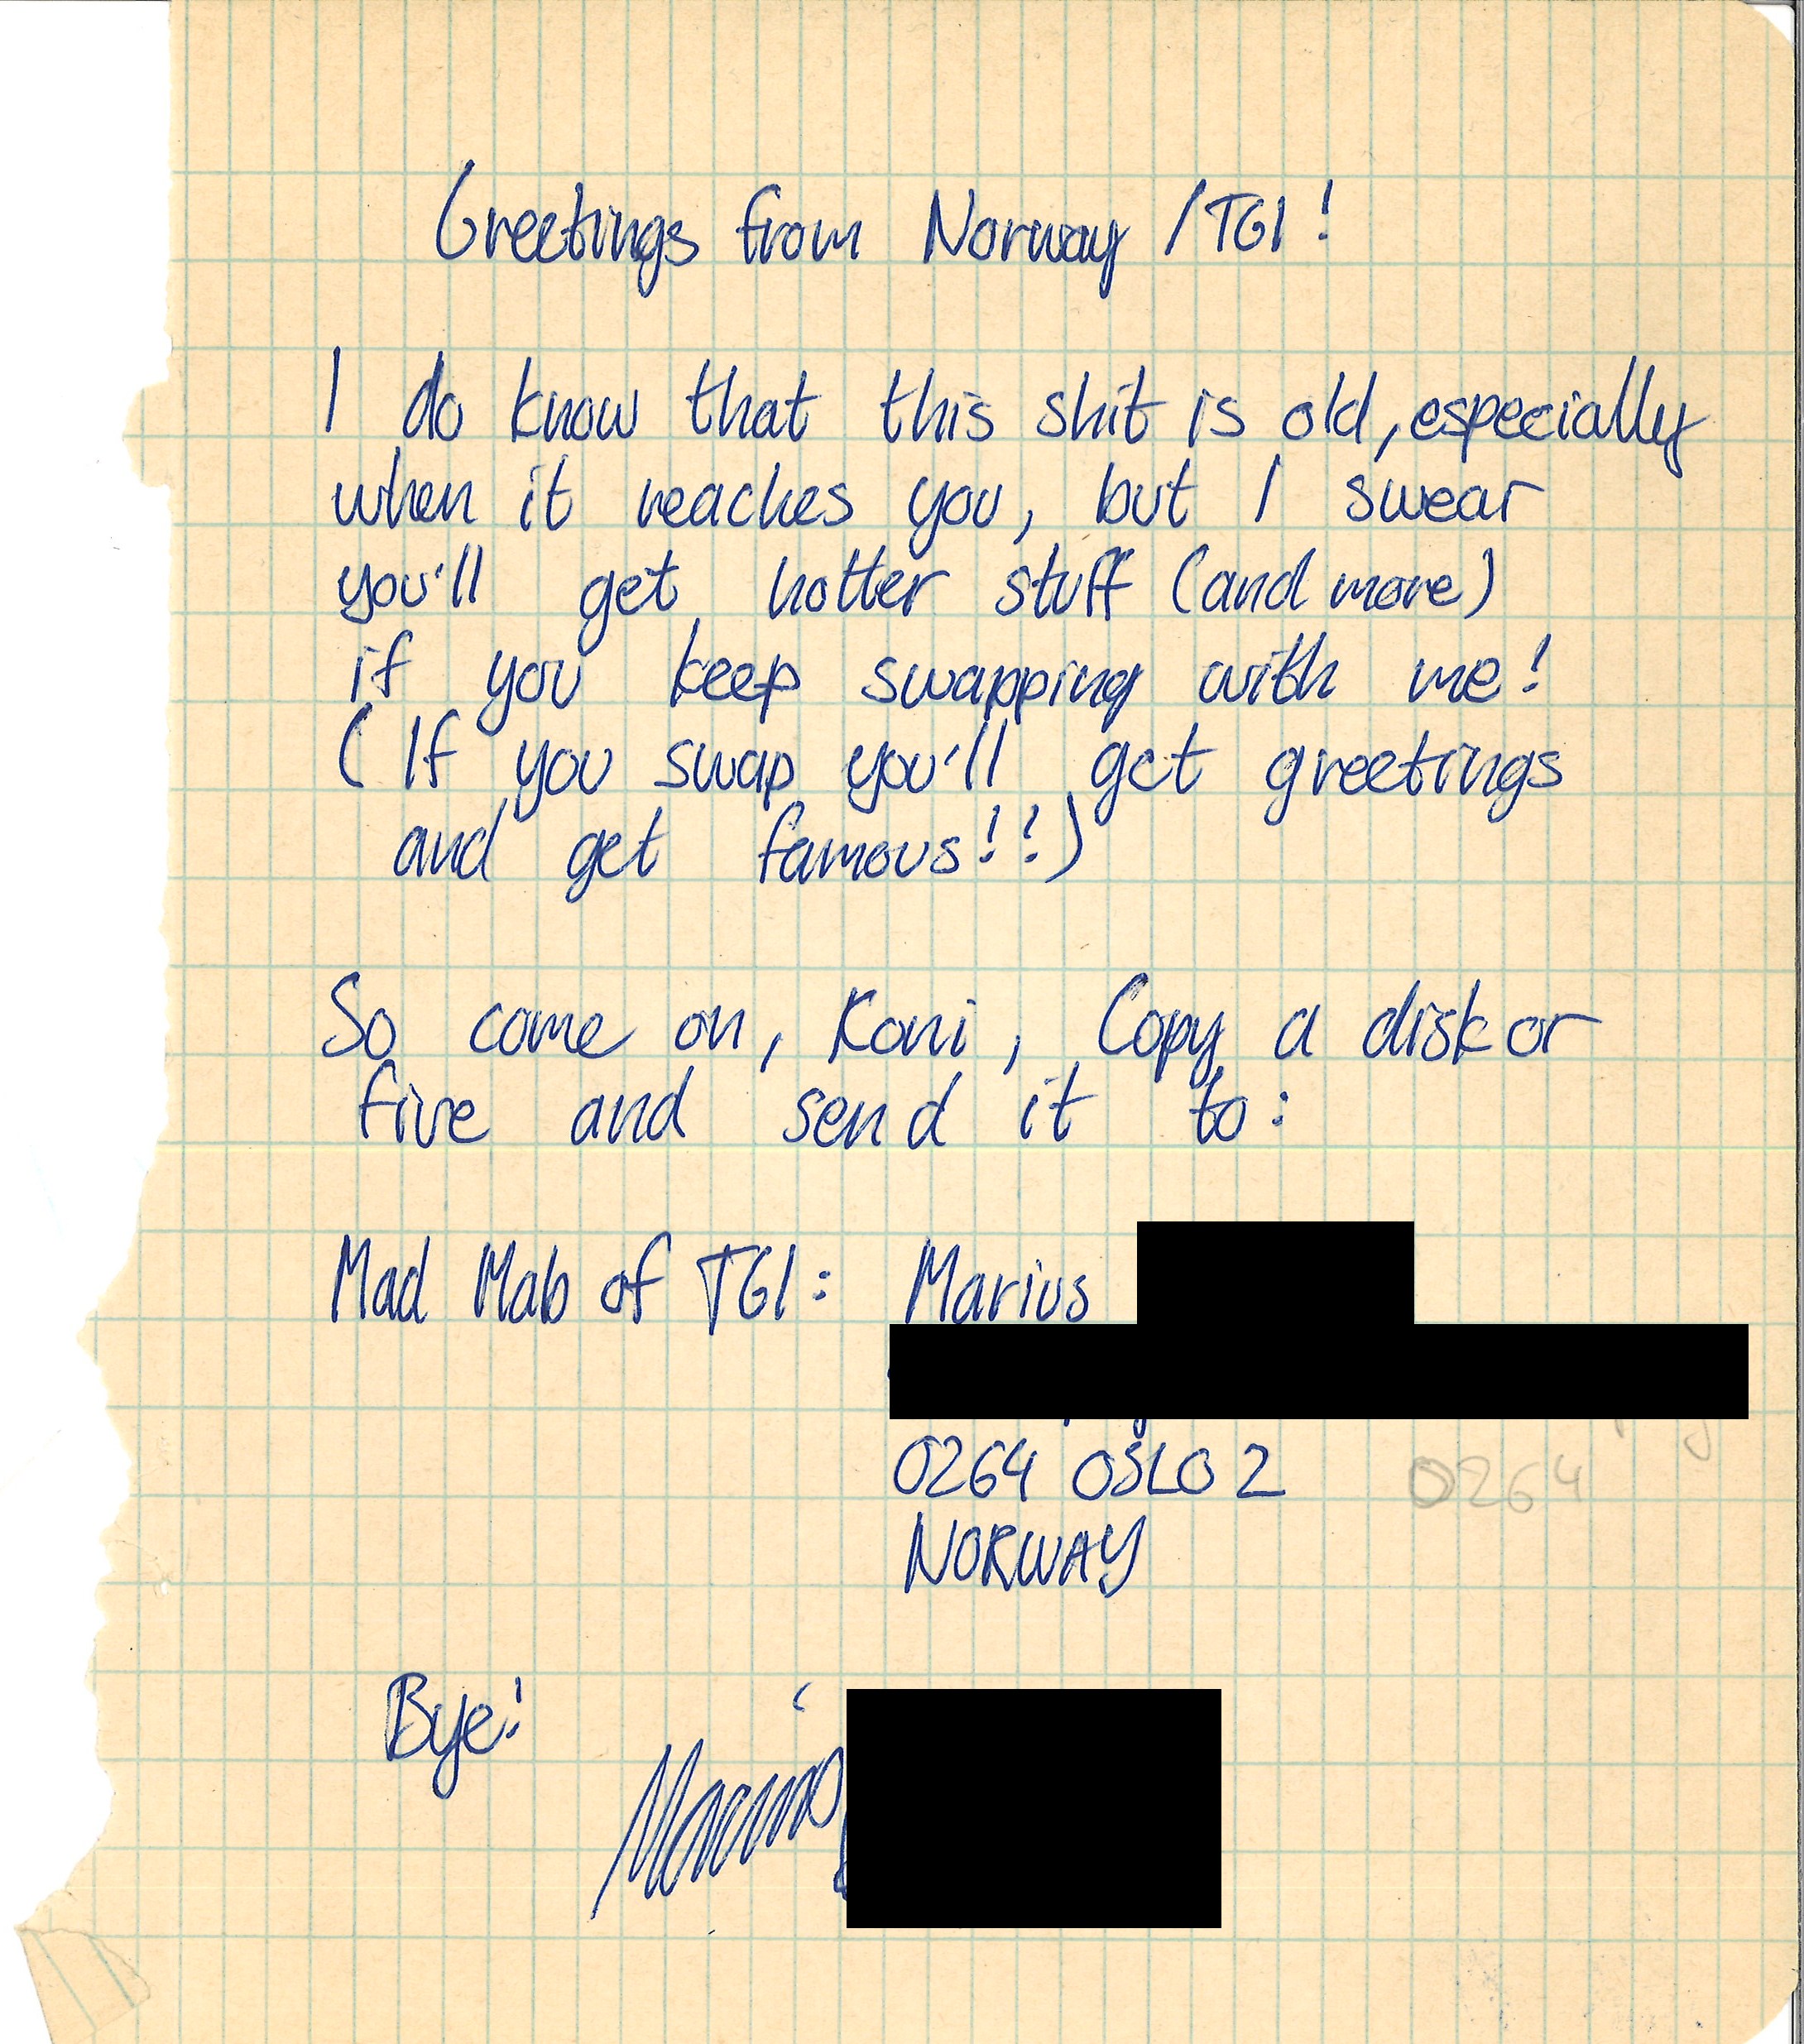 Greetings from Norway /TGI!
I do know that this shit is old, especially
when it reaches you, but I swear
you'll get hotter stuff (and more)
if you keep swapping with me!
(If you swap you'll get greetings
and get famous!!)
So come on, Koni, Copy a disk or
five and send it to:
Mad Mab of TGI: Marius
0264 OSLO 2 0264
NORWAY
Bye!
Marius